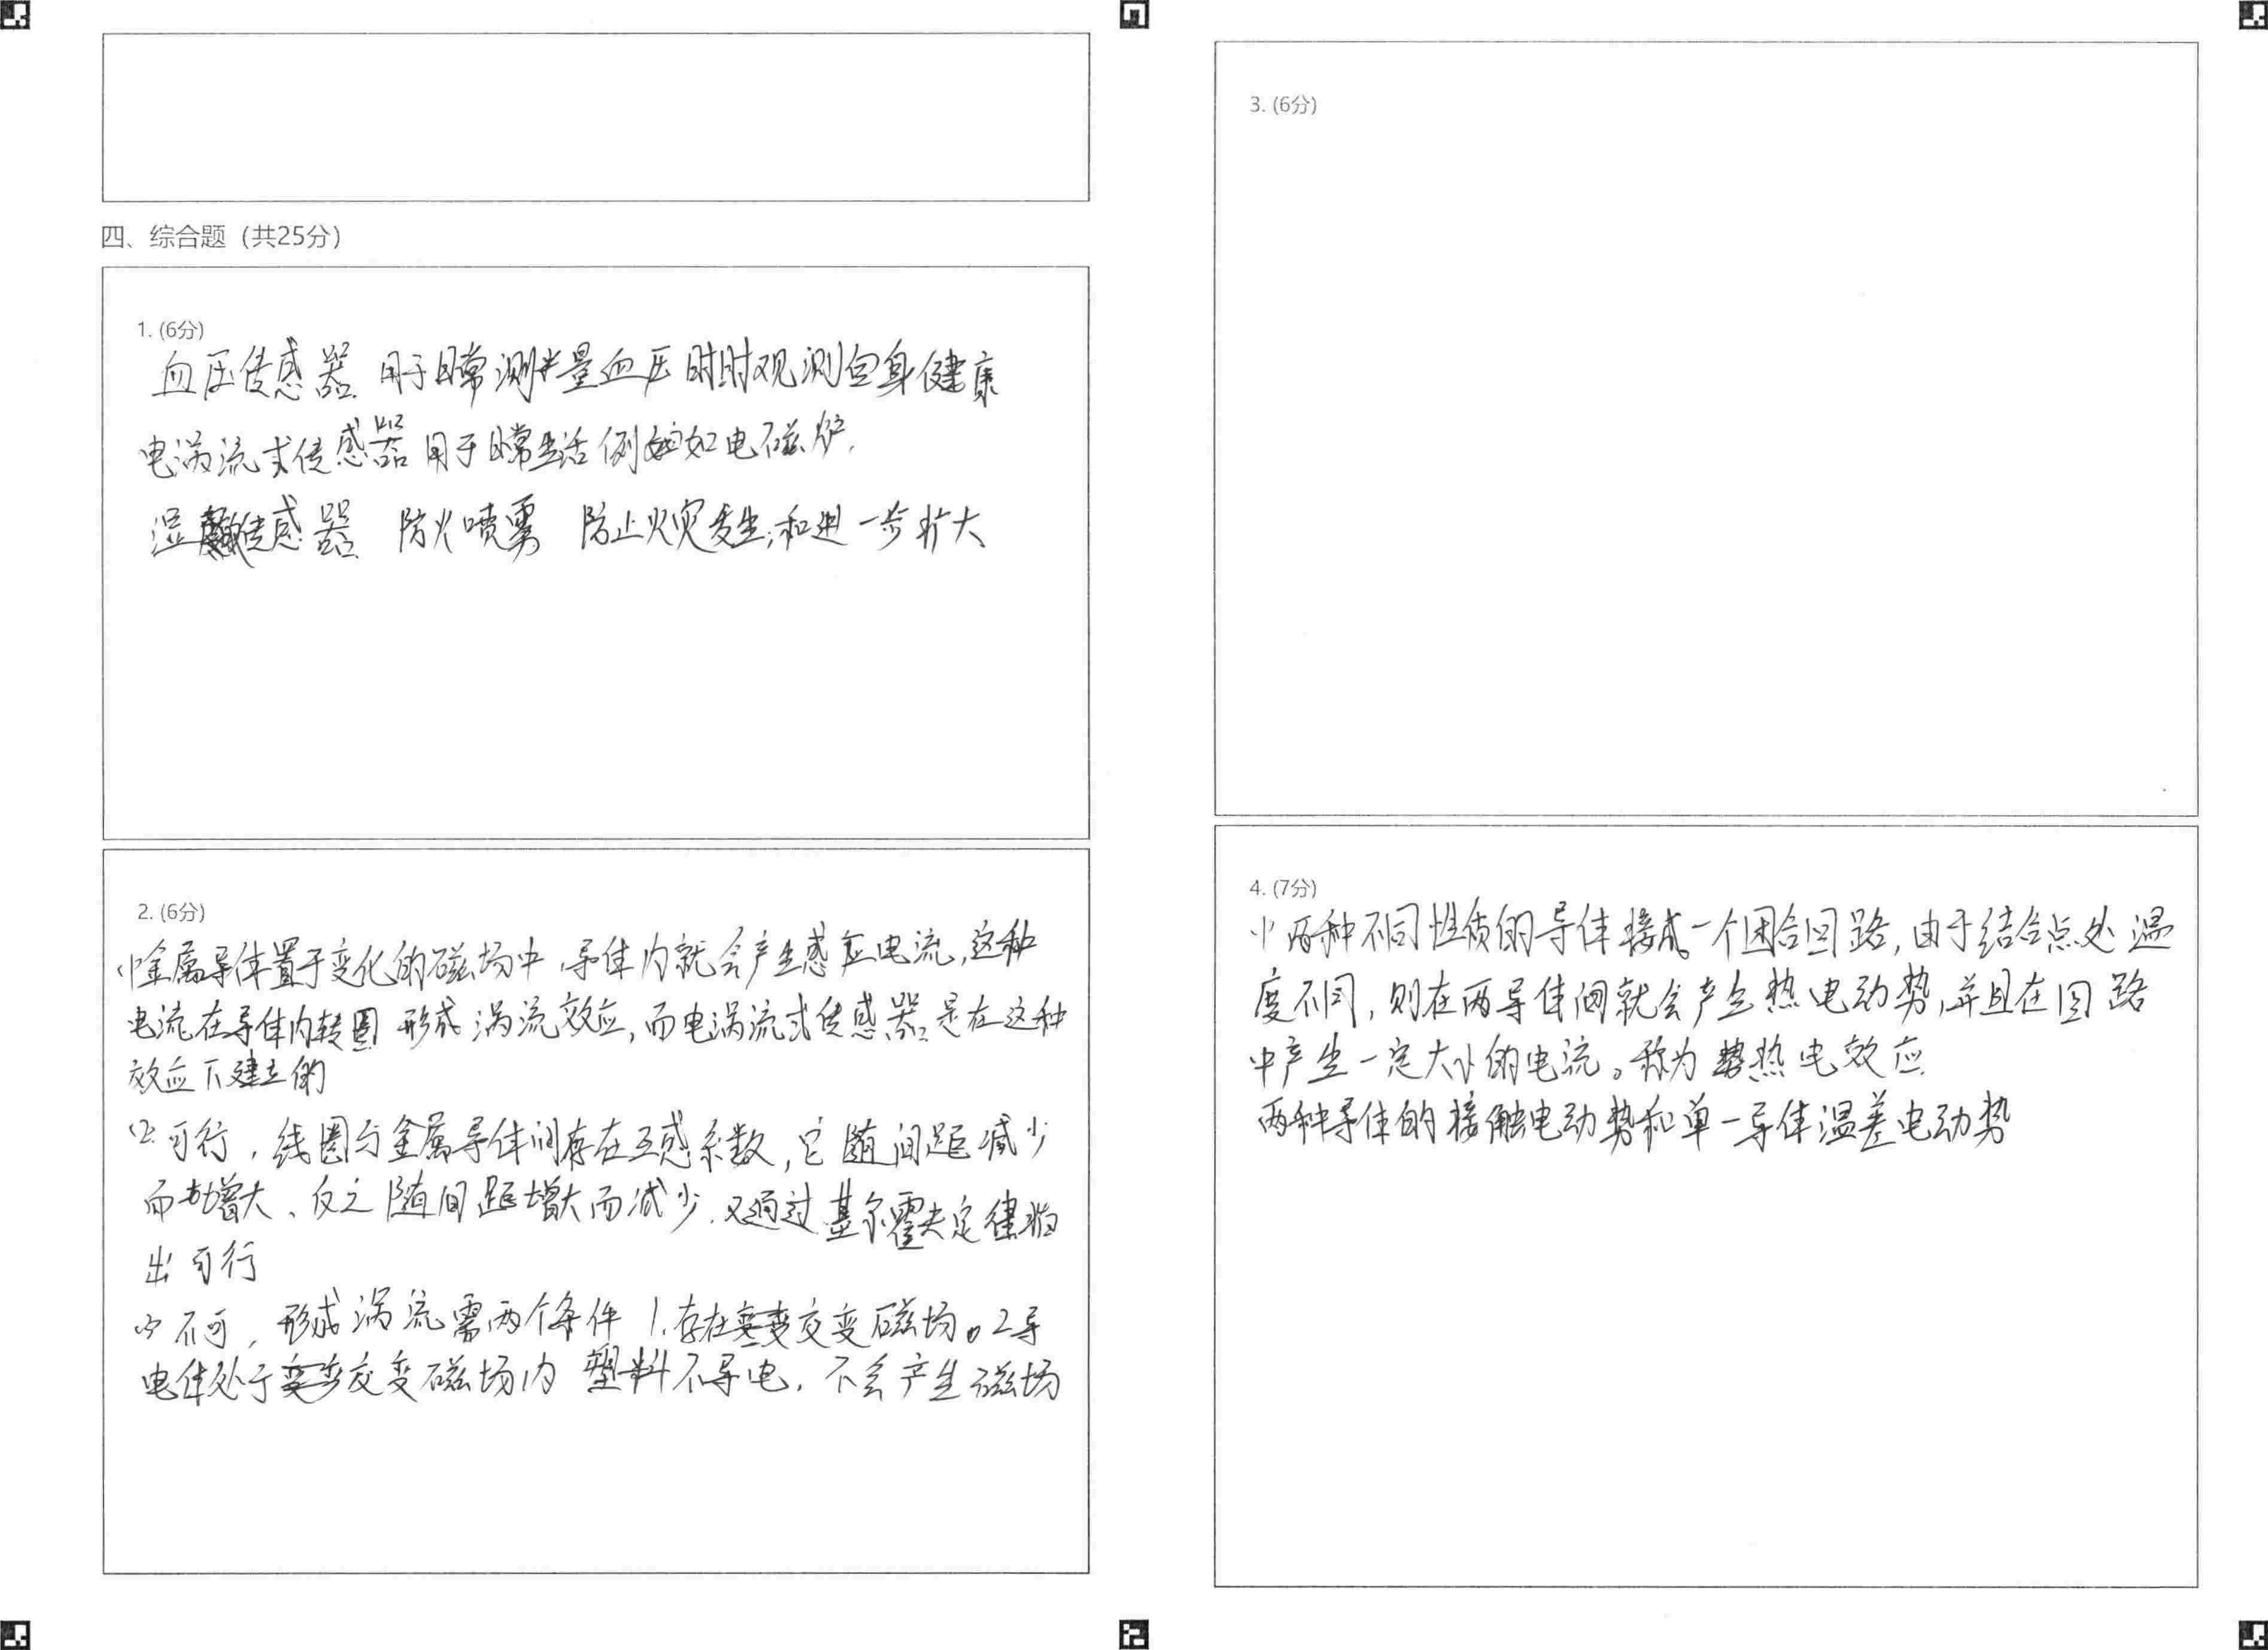 四、综合题（共25分）
1. (6分)
血压传感器 用于日常测量血压时时观测自身健康
电涡流式传感器用于日常生活例如电磁炉.
湿敏传感器 防火喷雾 防止火灾发生,和进一步扩大
2. (6分)
(1)金属导体置于变化的磁场中,导体内就会产生感应电流,这种
电流在导体内转圈 形成涡流效应,而电涡流式传感器是在这种
效应下建立的
(2)可行,线圈与金属导体间存在互感系数,它随间距减少
而增大、反之随间距增大而减少.又通过基尔霍夫定律
出可行
(3)不可,形成涡流需两个条件 1.存在交变磁场。2导
电体处于交变磁场内 塑料不导电.不会产生磁场
3. (6分)
4. (7分)
(1)两种不同性质的导体接成一个闭合回路,由于结合点处温
度不同,则在两导体间就会产生热电动势,并且在回路
中产生一定大小的电流。称为热电效应
两种导体的接触电动势和单一导体温差电动势